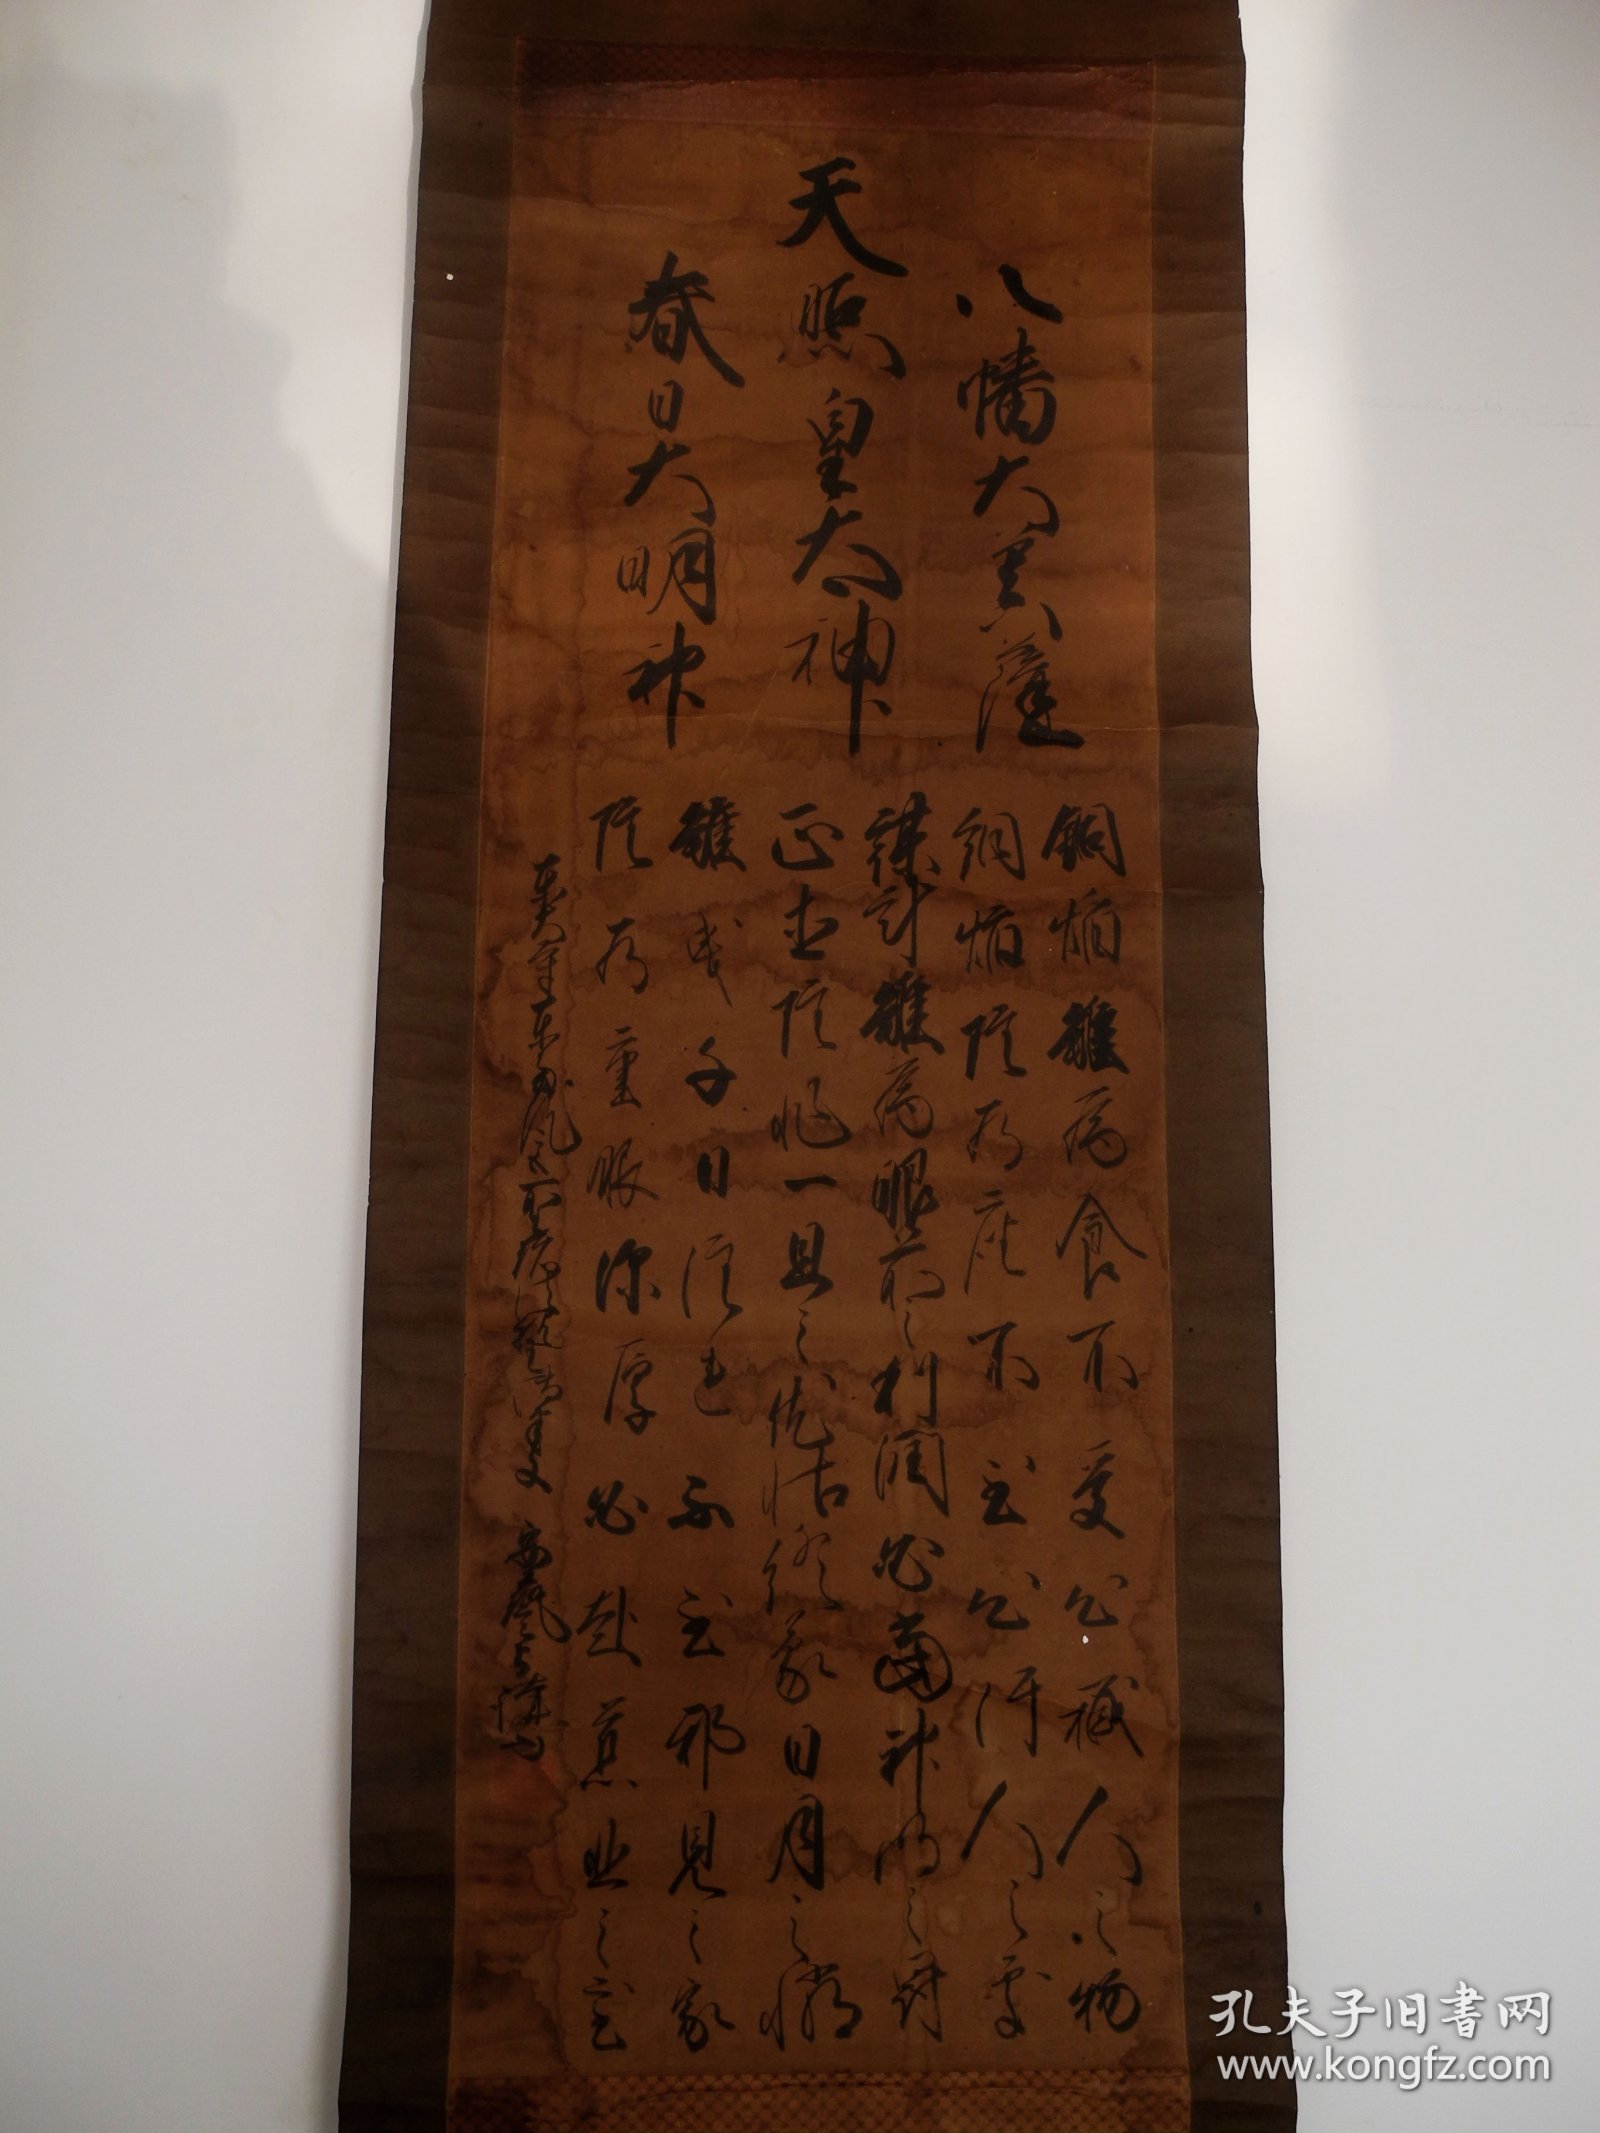 八幡大菩薩
天照皇太神
春日大明神
銅焰雖為食不受心穢人之物
銅焰雖為座不至心汙人之處
謀計雖為眼前之利潤必當神明之罸
正直雖非一旦之依怙終蒙日月之憐
雖曳千日注連不至邪見之家
雖為重服深厚必赴慈悲之室
孔夫子旧书网
www.kongfz.com